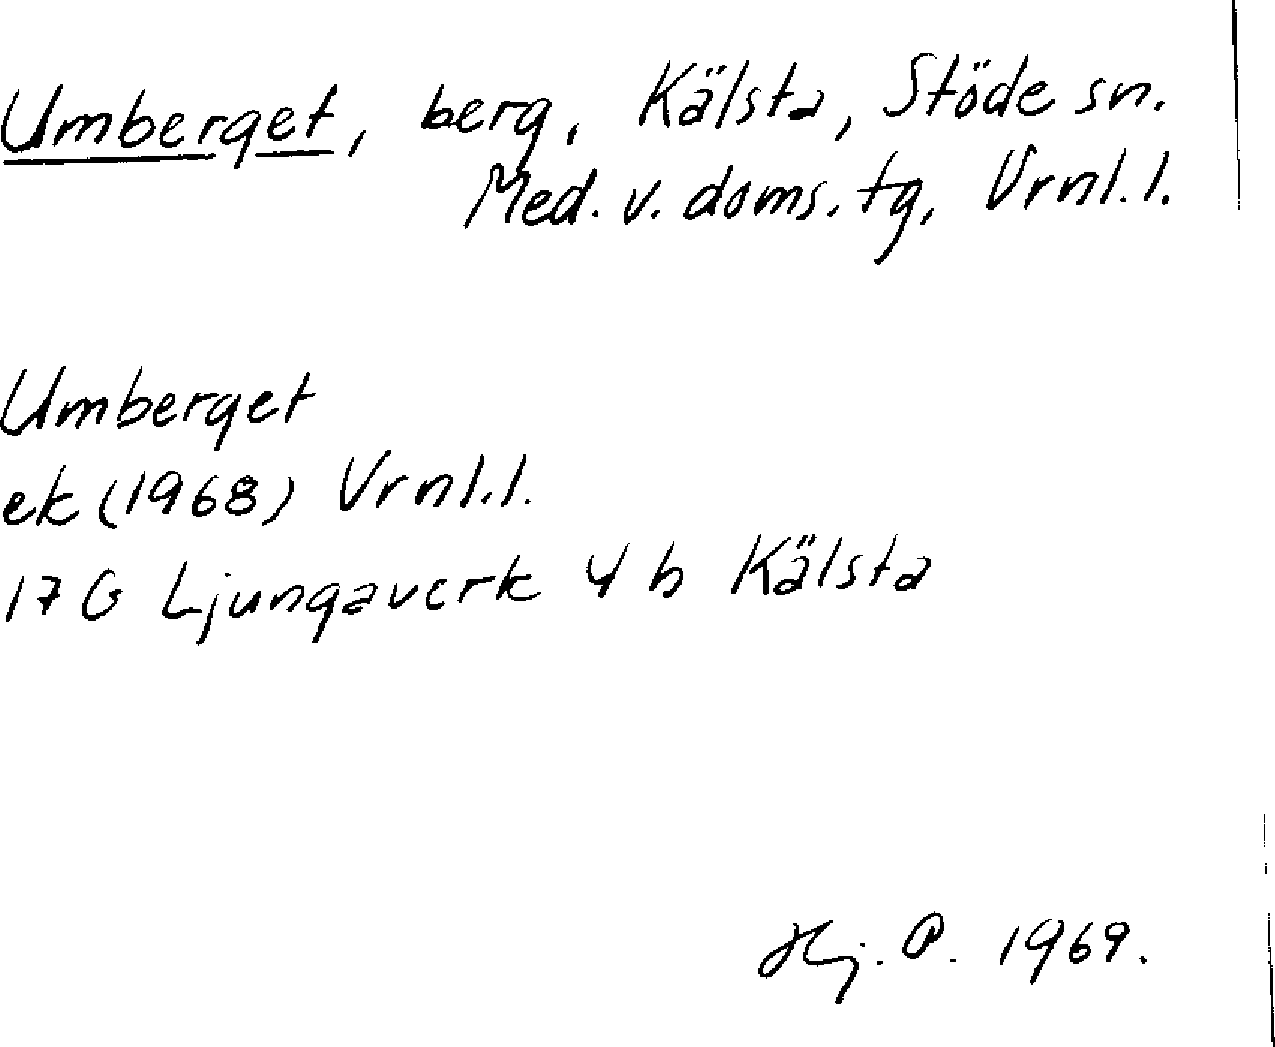 Umberget, berg, Kälsta, Stöde sn.
Med. v. doms. tg, Vrnl. l.
Umberget
ek (1968) Vrnl. l.
17 G Ljungaverk 4 b Kälsta
Hj. P. 1969.